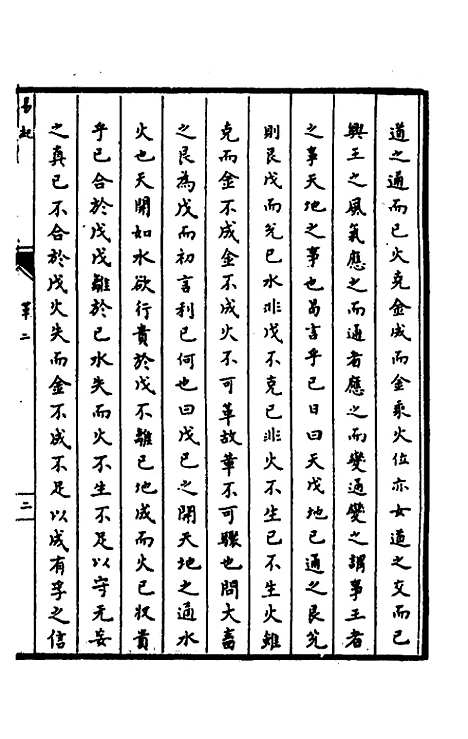 道之通而已火克金成而金乘火位亦女道之交而已
興王之風氣應之而通者應之而變通變之謂事王者
之事天地之事也曷言乎已日曰天戊地已通之艮兊
則艮戊而兊已水非戊不克已非火不生已不生火雖
克而金不成金不成火不可革故革不可驟也問大畜
之艮為戊而初言利已何也曰戊已之開天地之通水
火也天開如水欲行貴於戊不離已地成而火已收貴
乎已合於戊戊離於已水失而火不生不足以守无妄
之真已不合於戊火失而金不成不足以成有孚之信
革二
二